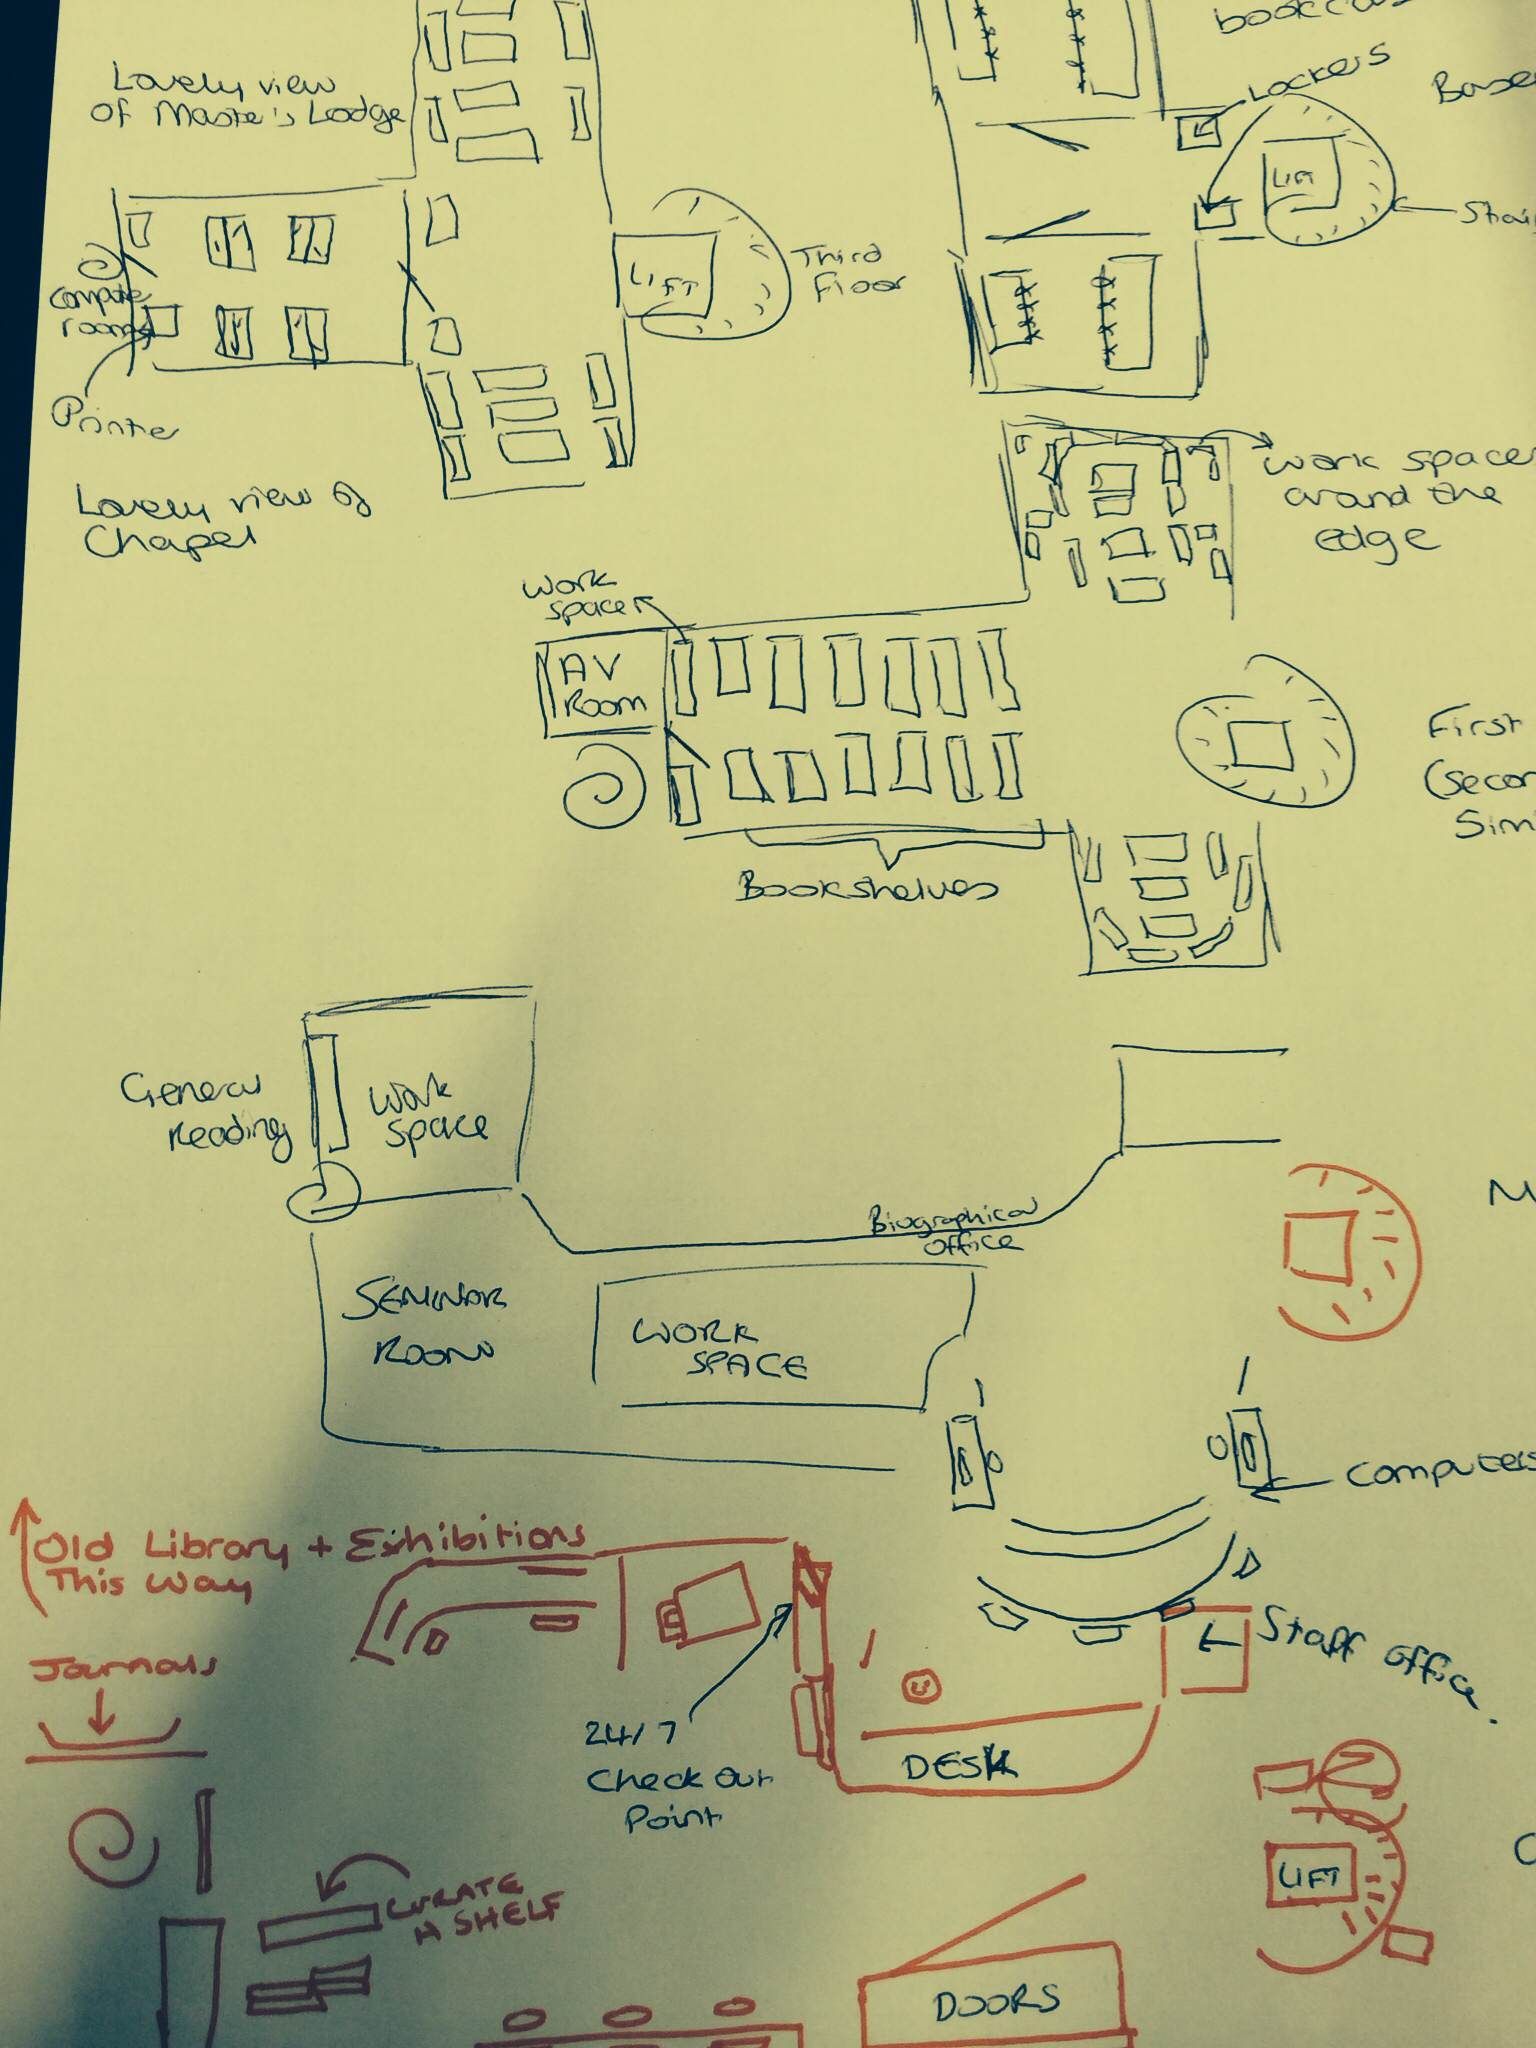 Lovely view
of Master's Lodge
Lockers
LIFT
Third
Floor
LIFT
Computer
rooms
Printer
Lovely view of
Chapel
work space
around the
edge
work
space
AV
Room
First
Bookshelves
General
Reading
Work
Space
Biographical
office
SEMINAR
ROOM
WORK
SPACE
Computers
Old Library + Exhibitions
This way
Staff Office.
Journals
24/7
Check out
Point
DESK
LIFT
CURATE
A SHELF
DOORS